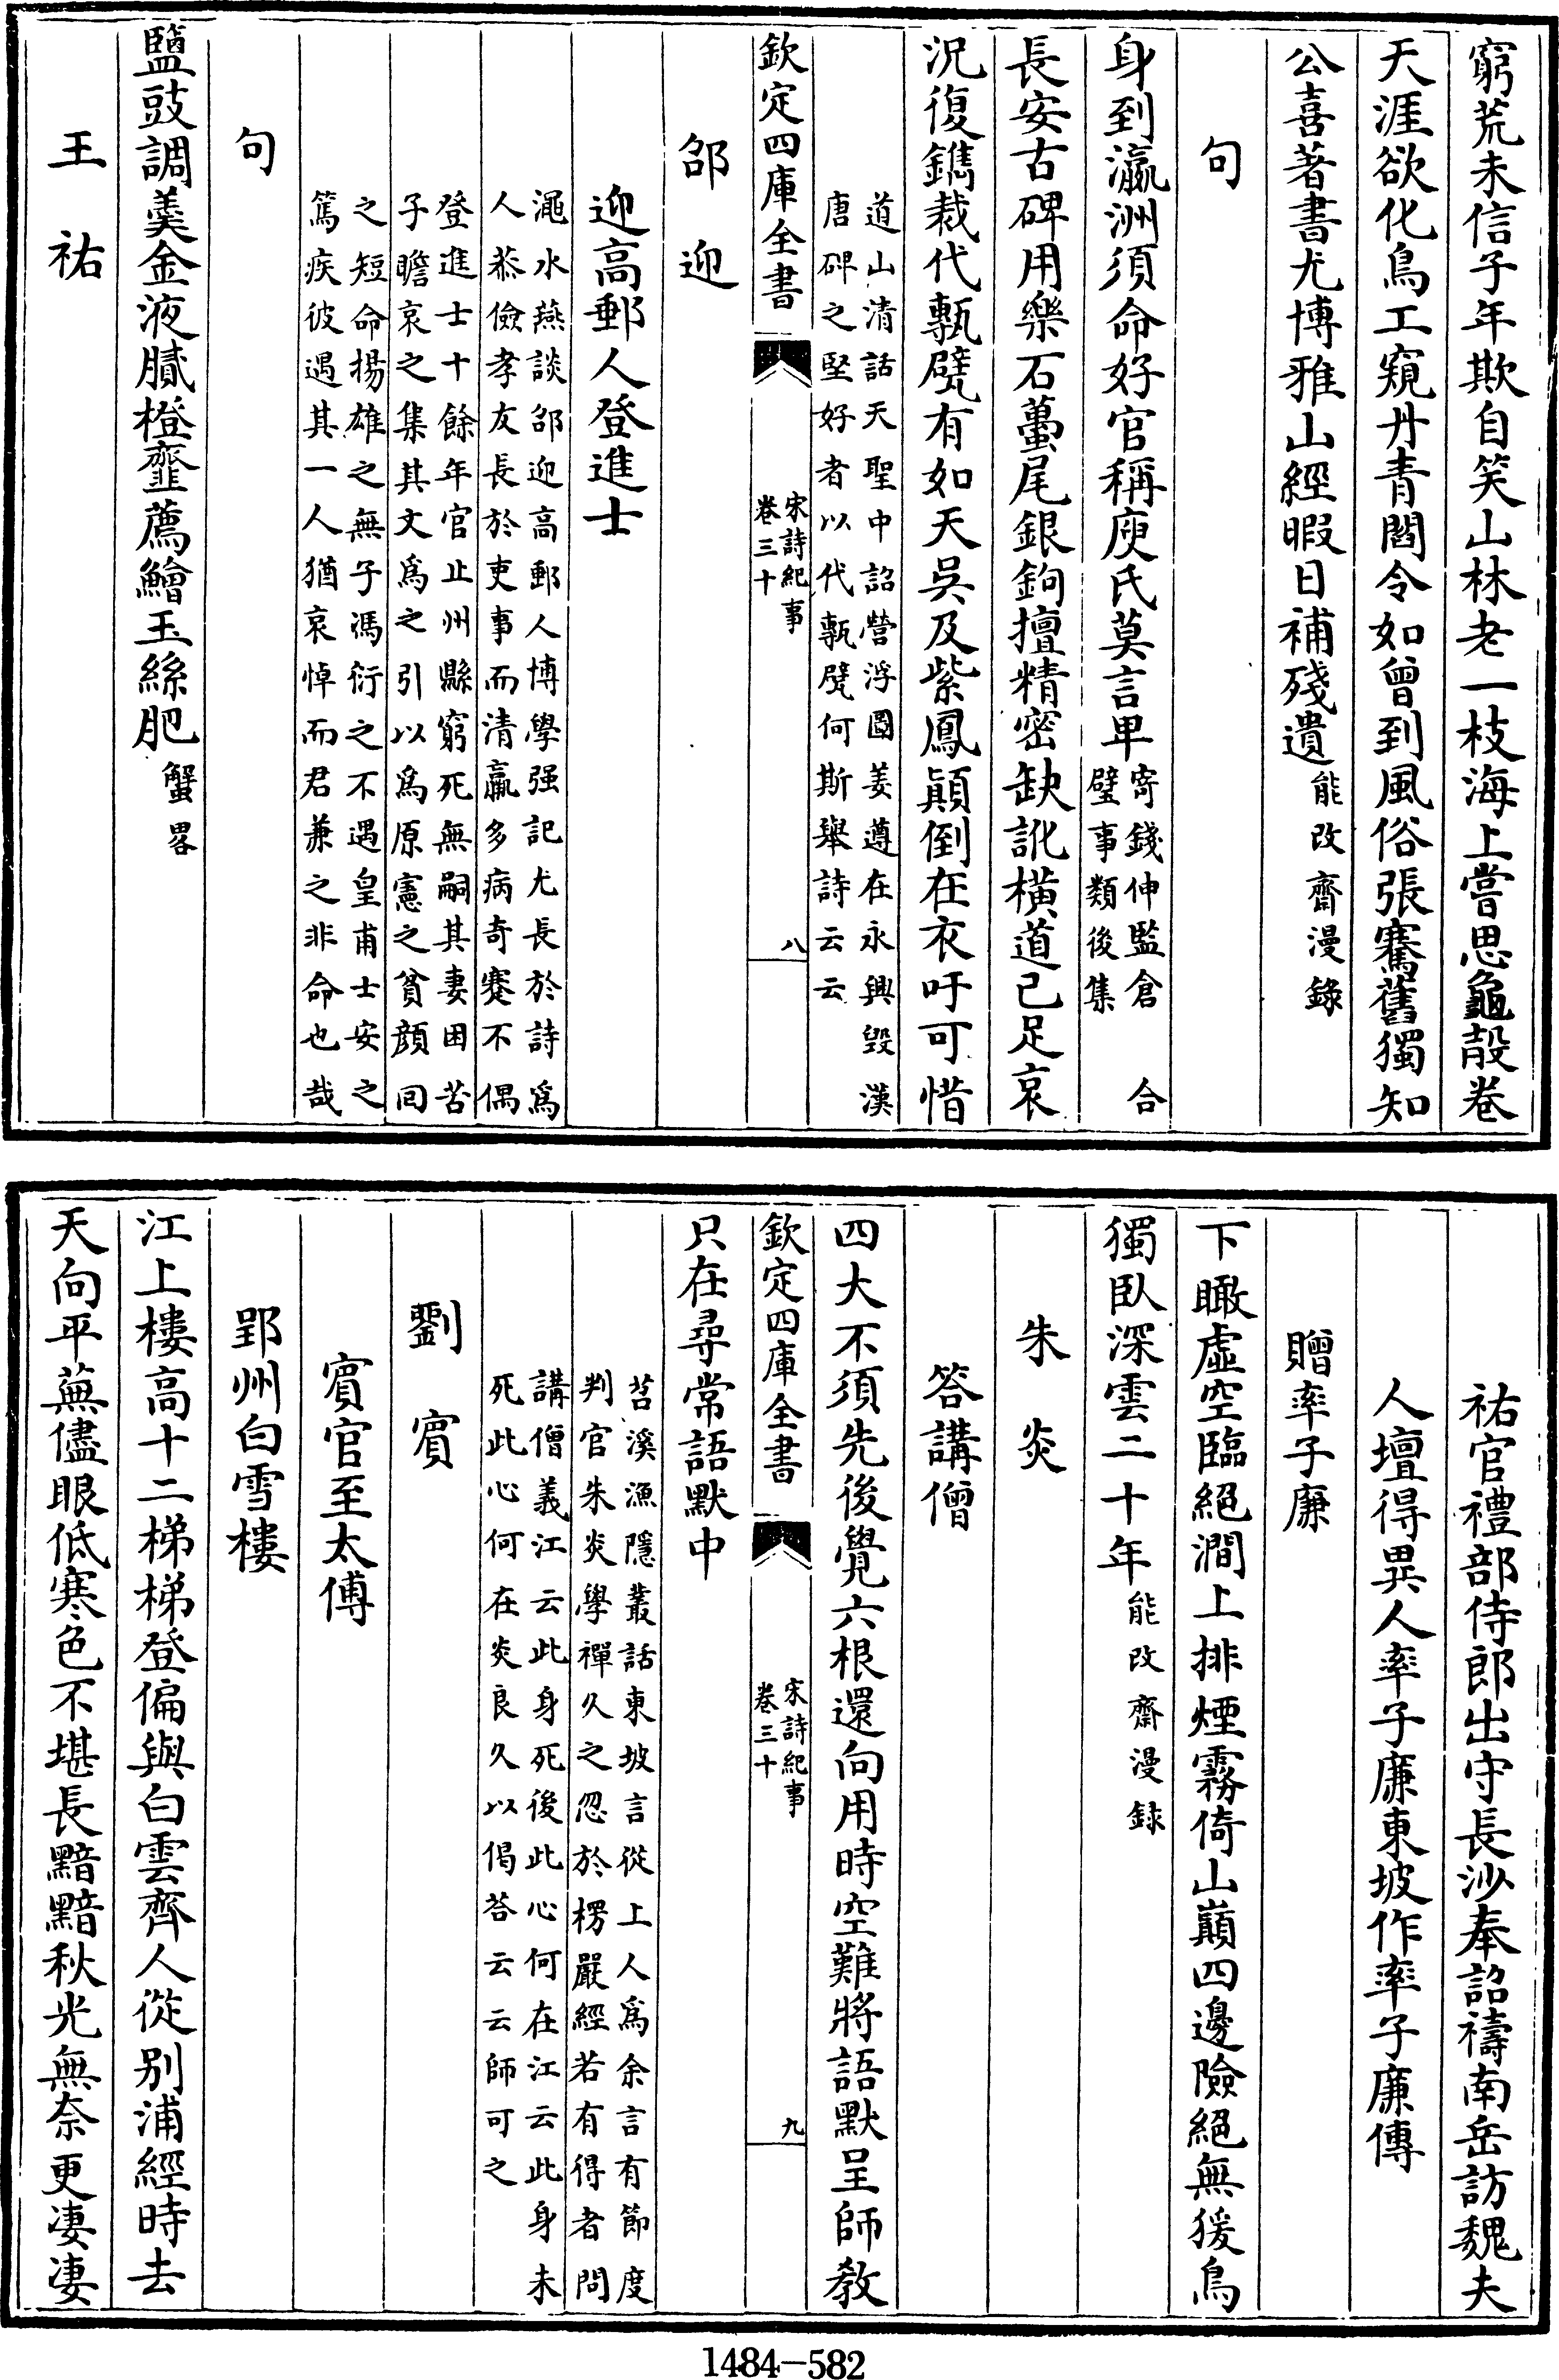 窮荒未信子年欺自笑山林老一枝海上嘗思龜殼卷
天涯欲化鳥工窺丹青閻令如曾到風俗張騫舊獨知
公喜著書尤博雅山經暇日補殘遺能改齋漫錄
句
身到瀛洲須命好官稱庾氏莫言卑寄錢伸監倉　合
璧事類後集
長安古碑用樂石蠆尾銀鉤擅精密缺訛橫道已足哀
況復鐫裁代甎甓有如天吳及紫鳳顛倒在衣吁可惜
道山清話天聖中詔營浮圖姜遵在永興毀漢
唐碑之堅好者以代甎甓何斯舉詩云云
欽定四庫全書
宋詩紀事
卷三十
八
邵迎
迎高郵人登進士
澠水燕談邵迎高郵人博學强記尤長於詩爲
人恭儉孝友長於吏事而清羸多病奇蹇不偶
登進士十餘年官止州縣窮死無嗣其妻困苦
子瞻哀之集其文爲之引以爲原憲之貧顔回
之短命揚雄之無子馮衍之不遇皇甫士安之
篤疾彼遇其一人猶哀悼而君兼之非命也哉
句
鹽豉調羹金液膩橙虀薦鱠玉絲肥蟹畧
王祐
祐官禮部侍郎出守長沙奉詔禱南岳訪魏夫
人壇得異人率子廉東坡作率子廉傳
贈率子廉
下瞰虛空臨絕澗上排煙霧倚山巔四邊險絕無猨鳥
獨臥深雲二十年能改齋漫録
朱炎
答講僧
四大不須先後覺六根還向用時空難將語默呈師教
欽定四庫全書
宋詩紀事
卷三十
九
只在尋常語默中
苕溪漁隱叢話東坡言從上人爲余言有節度
判官朱炎學禪久之忽於楞嚴經若有得者問
講僧義江云此身死後此心何在江云此身未
死此心何在炎良久以偈荅云云師可之
劉賓
賓官至太傅
郢州白雪樓
江上樓高十二梯梯登偏與白雲齊人從别浦經時去
天向平蕪儘眼低寒色不堪長黯黯秋光無奈更凄凄
1484-582